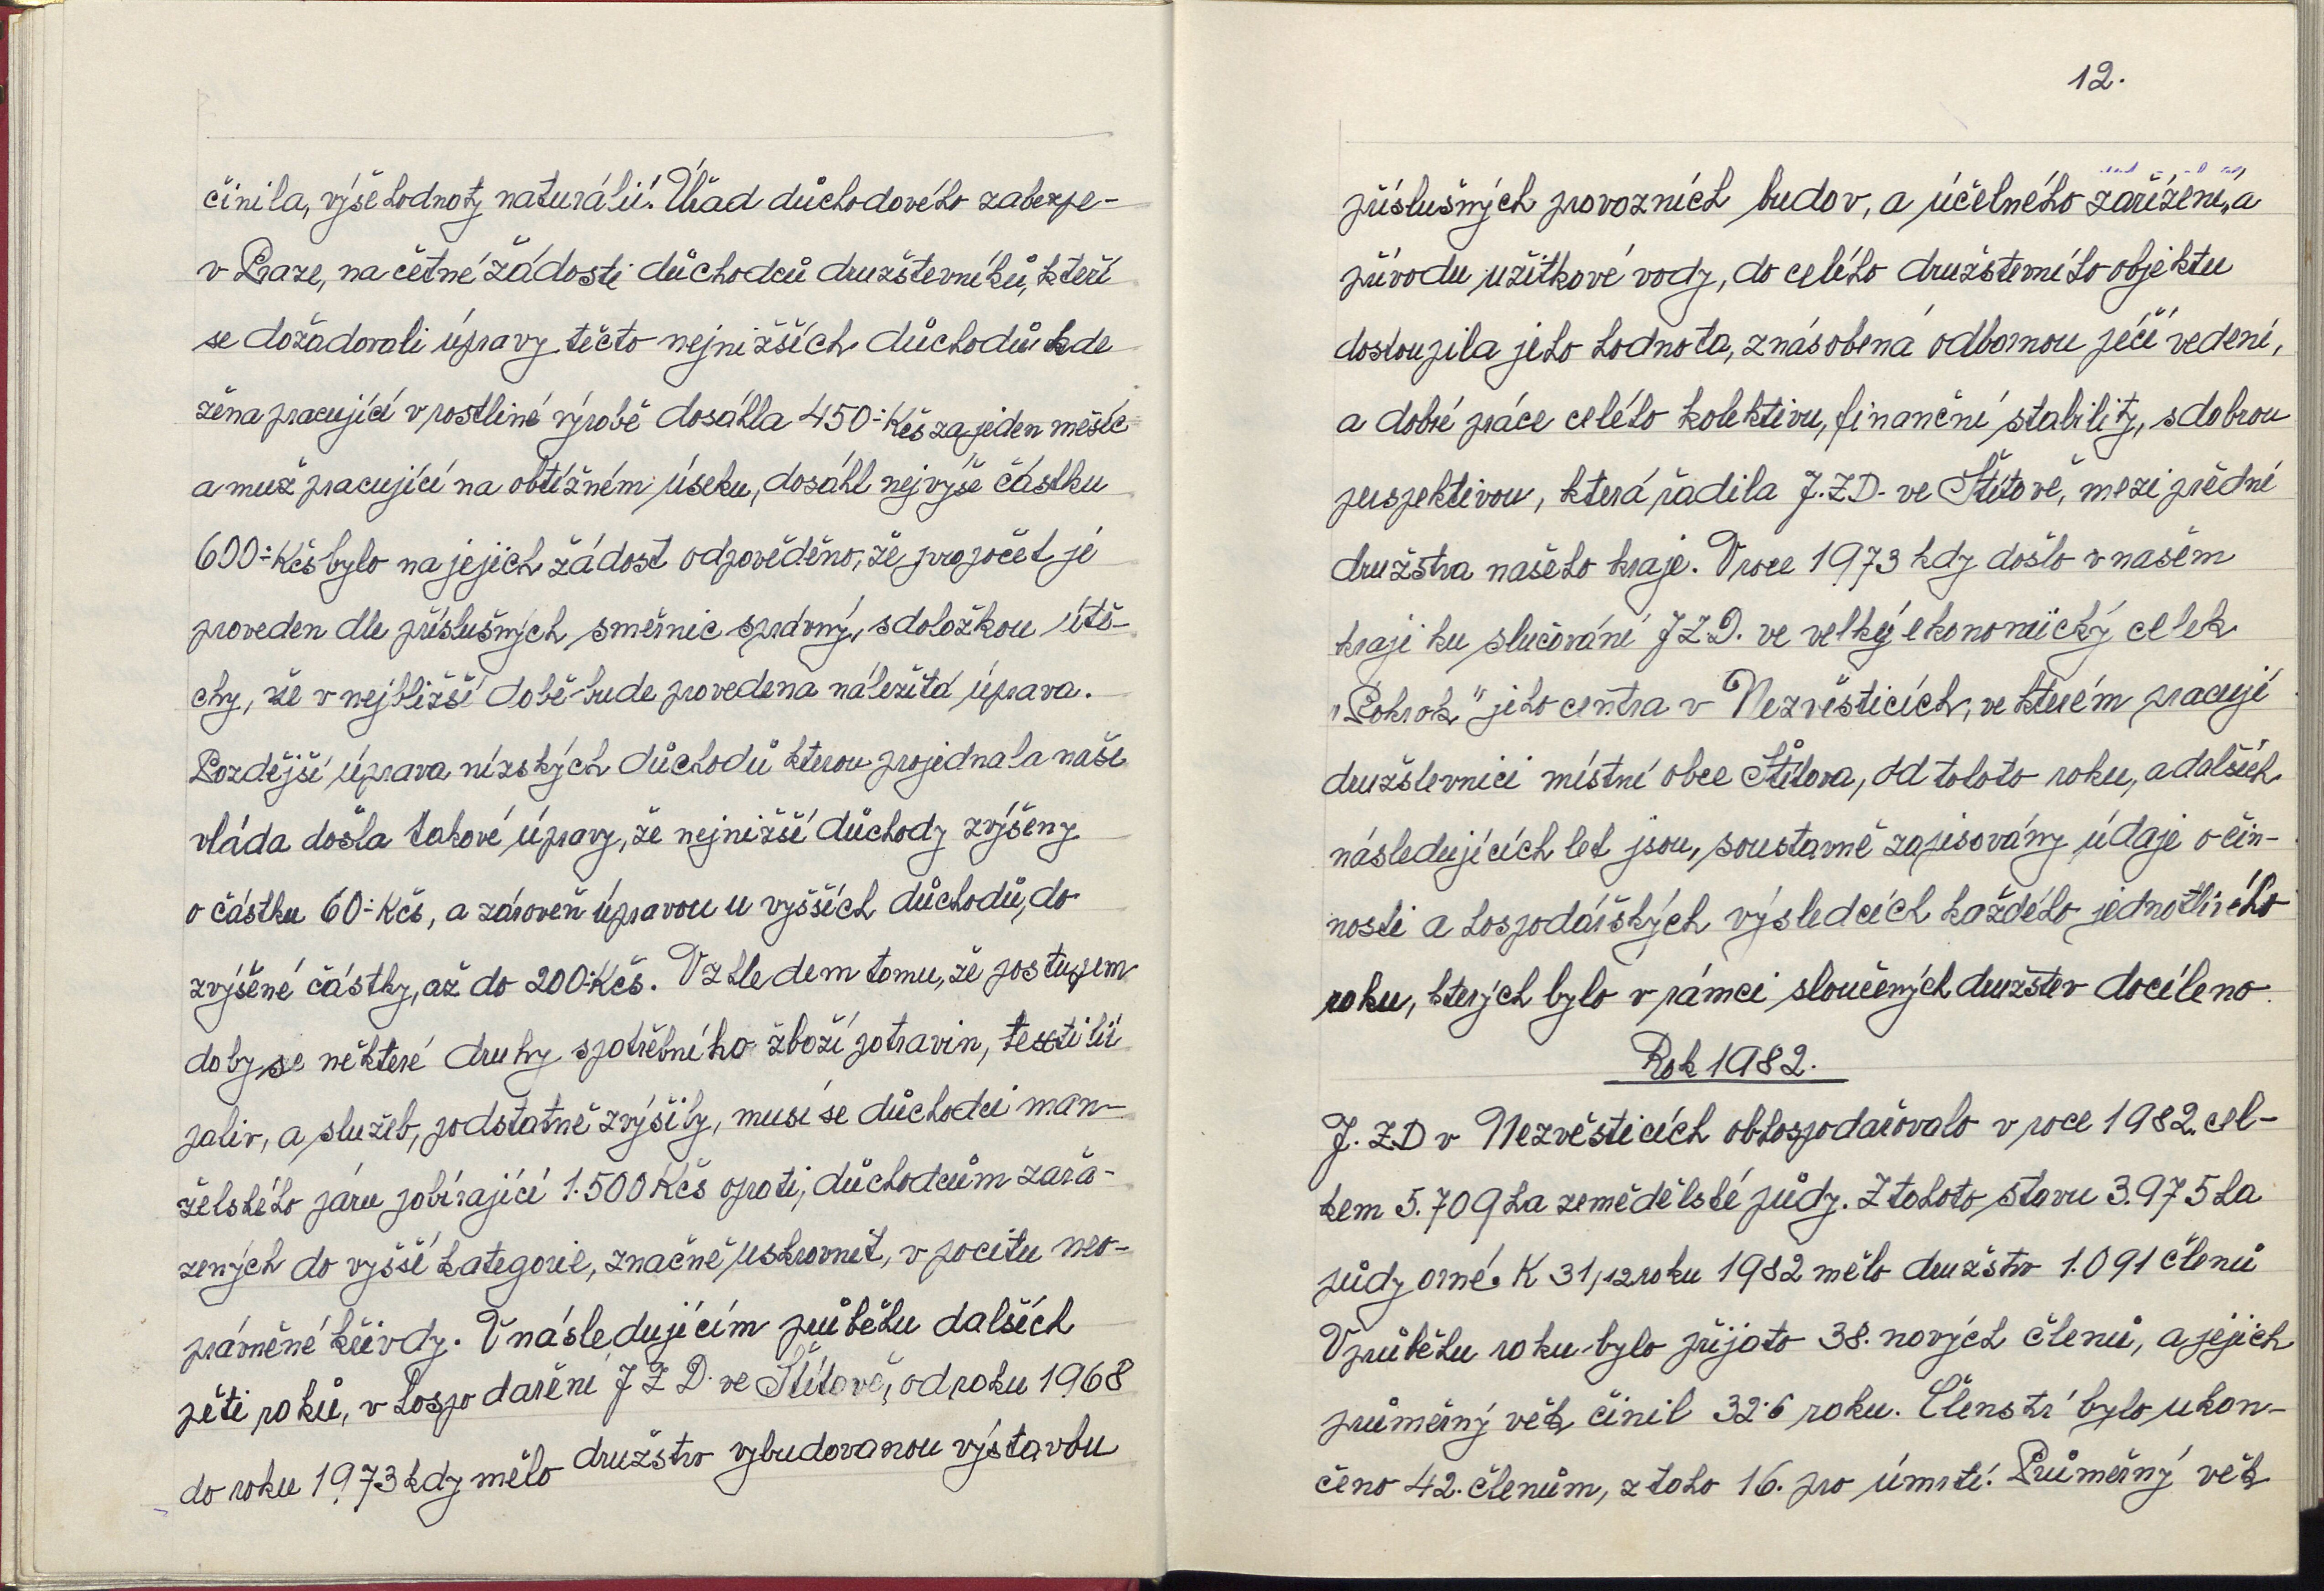 činila, výše hodnoty naturálií. Úřad důchodového zabezpe-
v Praze, na četné žádosti důchodců družstevníků, kteří
se dožadovali úpravy těchto nejnižších důchodů kde
žena pracující v rostliné výrobě dosáhla 450.- Kčs za jeden měsíc
a muž pracující na obtížném úseku, dosáhl nejvýše částku
600.- Kčs bylo na jejich žádost odpověděno, že propočet je
proveden dle příslušných směrnic správný, s doložkou útě-
chy, že v nejbližší době bude provedena náležitá úprava.
Pozdější úprava nízských důchodů kterou projednala naše
vláda došla takové úpravy, že nejnižší důchody zvýšeny
o částku 60.- Kčs, a zároveň úpravou u vyšších důchodů, do
zvýšené částky, až do 200.- Kčs. Vzhledem tomu, že postupem
doby se některé druhy spotřebního zboží potravin, textilií
paliv, a služeb, podstatně zvýšily, musí se důchodci man-
želského páru pobírající 1.500 Kčs oproti, důchodcům zařa-
zených do vyšší kategorie, značně uskrovnit, v pocitu neo-
právněné křivdy. V následujícím průběhu dalších
pěti roků, v hospodaření J Z D. ve Štítově, od roku 1968
do roku 1973 kdy mělo družstvo vybudovanou výstavbu
12.
příslušných provozních budov, a účelného zařízení, a
přívodu užitkové vody, do celého družsterního objektu
dostoupila jeho hodnota, znásobená odbornou péčí vedení,
a dobré práce celého kolektivu, finanční stability, s dobrou
perspektivou, která řadila J.Z.D. ve Štítově, mezi přední
družstva našeho kraje. V roce 1973 kdy došlo v našem
kraji ku slučování J Z D. ve velký ekonomický celek
"Pokrok" jeho centra v Nezvěsticích, ve kterém pracují
družstevníci místní obce Štítova, od tohoto roku, a dalších
následujících let jsou, soustavně zapisovány údaje o čin-
nosti a hospodářských výsledcích každého jednotlivého
roku, kterých bylo v rámci sloučených družstev docíleno.
Rok 1982.
J. ZD v Nezvěsticích obhospodařovalo v roce 1982. cel-
kem 5.709 ha zemědělské půdy. Z tohoto stavu 3.975 ha
půdy orné. K 31/12 roku 1982 mělo družstvo 1.091 členů
V průběhu roku bylo přijato 38. nových členů, a jejich
průměrný věk činil 32.6 roku. Členství bylo ukon-
čeno 42. členům, z toho 16. pro úmrtí. Průměrný věk